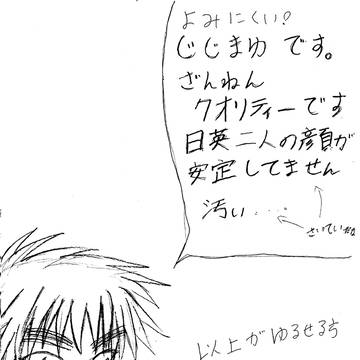 よみにくい?
じじまゆ です。
ざんねん
クオリティーです
日英二人の顔が
安定してません
汚い...
さいていだな
以上がゆるせる方